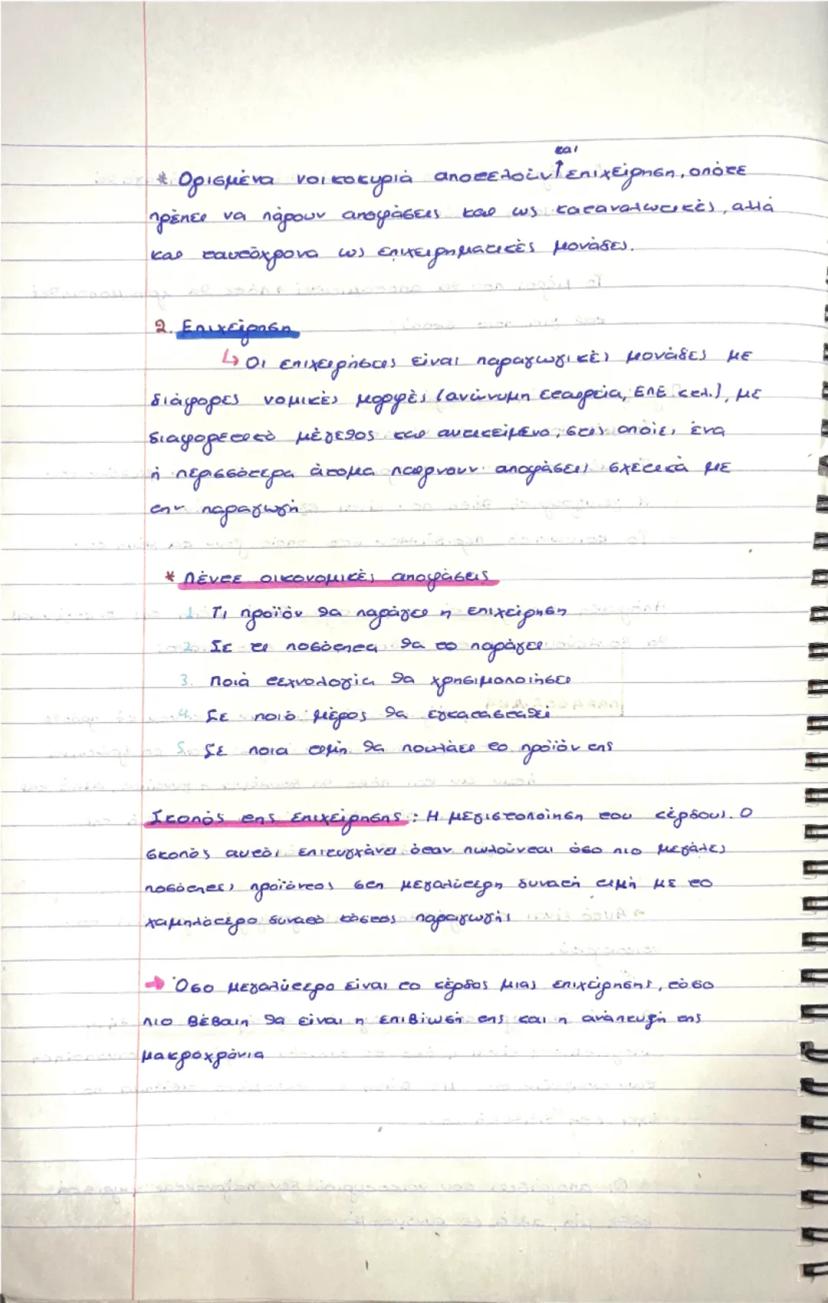 * Ορισμένα νοικοκυριά αποτελούν και επιχείρηση, οπότε
πρέπει να πάρουν αποφάσεις και ως καταναλωτικές, αλλά
και ταυτόχρονα ως επιχειρηματικές μονάδες.
2. Επιχείρηση
↳ Οι επιχειρήσεις είναι παραγωγικές μονάδες με
διάφορες νομικές μορφές (ανώνυμη εταιρεία, ΕΠΕ κτλ.), με
διαφορετικό μέγεθος και αντικείμενο, στις οποίες ένα
ή περισσότερα άτομα παίρνουν αποφάσεις σχετικά με
την παραγωγή
* Πέντε οικονομικές αποφάσεις
1. Τι προϊόν θα παράγει η επιχείρηση
2. Σε τι ποσότητα θα το παράγει
3. Ποιά τεχνολογία θα χρησιμοποιήσει
4. Σε ποιό μέρος θα εγκατασταθεί
5. Σε ποια τιμή θα πουλάει το προϊόν της
Σκοπός της επιχείρησης: Η μεγιστοποίηση του κέρδους. Ο
σκοπός αυτός επιτυγχάνει όταν πωλούνται όσο πιο μεγάλες
ποσότητες προϊόντος στη μεγαλύτερη δυνατή τιμή με το
χαμηλότερο δυνατό κόστος παραγωγής
→ Όσο μεγαλύτερο είναι το κέρδος μιας επιχείρησης, τόσο
πιο βέβαιη θα είναι η επιβίωσή της και η ανάπτυξή της
μακροχρόνια